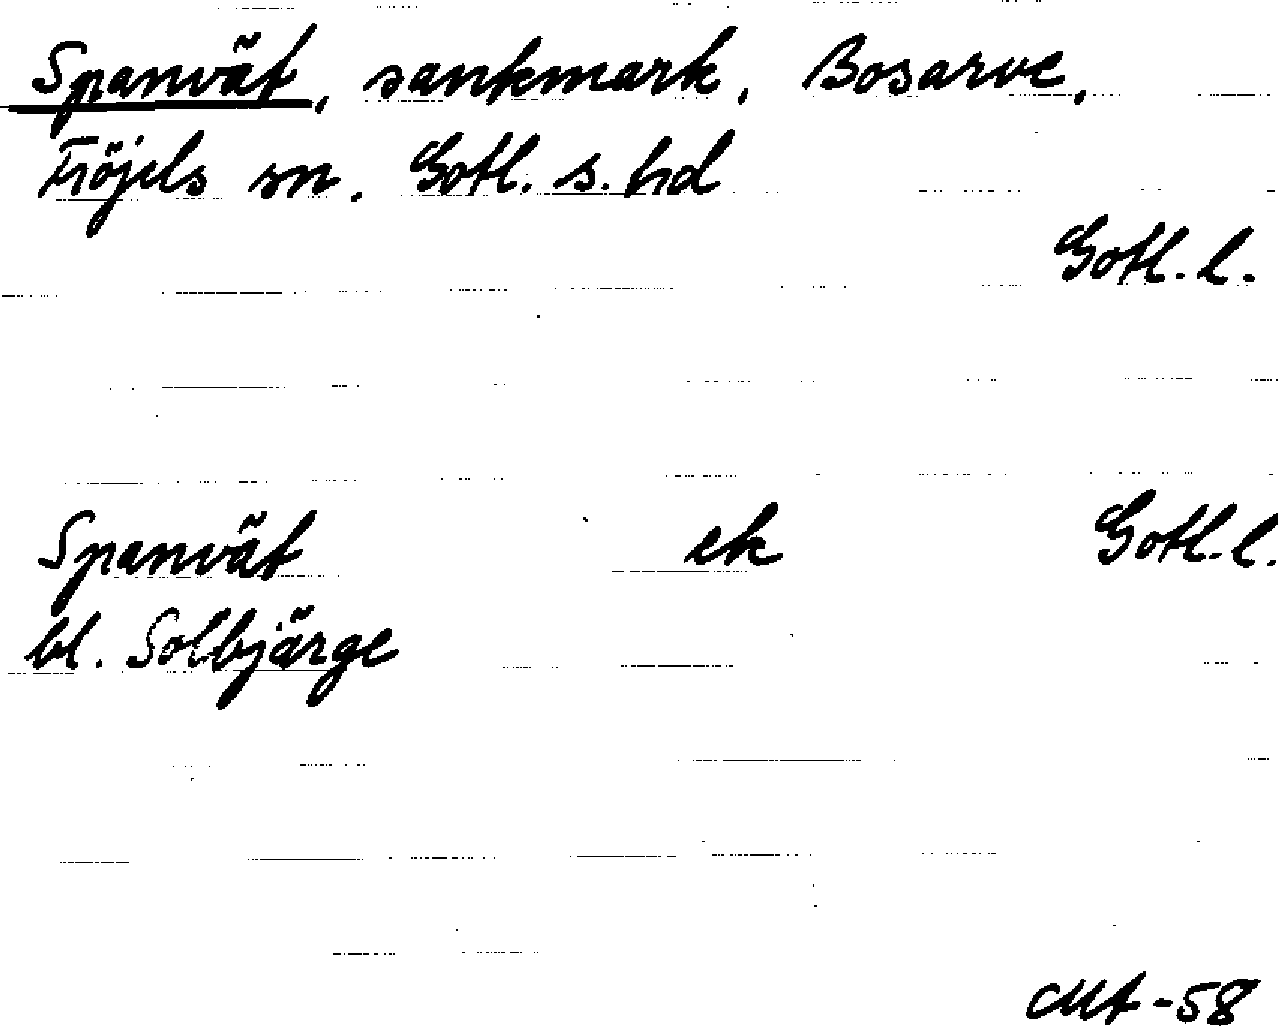 Spanvät, sankmark, Bosarve,
Fröjels sn. Gotl. s. hd
Gotl. l.
Spanvät ek Gotl. l.
bl. Solbjärge
Mt-58